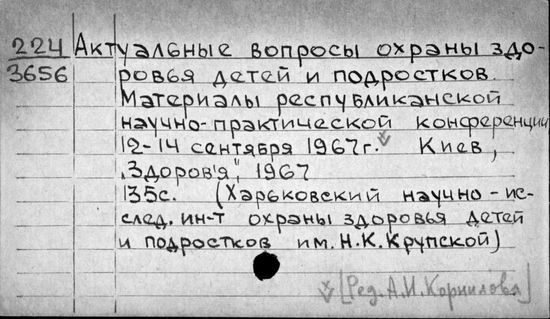 224 Актуальные вопросы охраны здо-
3656 ровья детей и подростков.
Материалы республиканской
научно-практической конференции
12-14 сентября 1967г. Киев,
"Здоров'я", 1967
135с. (Харьковский научно-ис-
след. ин-т охраны здоровья детей
и подростков им. Н.К. Крупской)
[Ред. А.И. Корнилова]